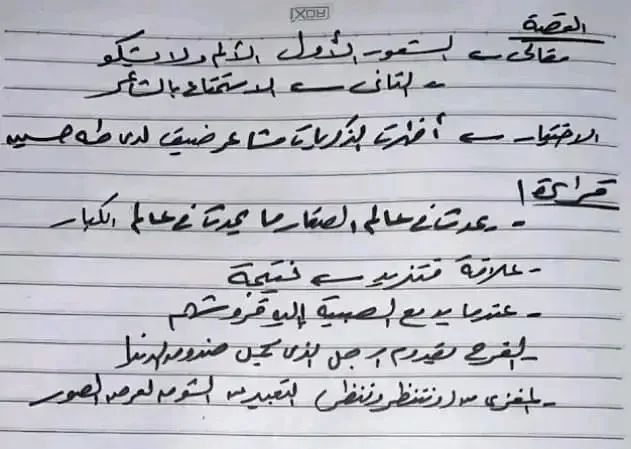 القصة
مقالى ← الشعور الأول الألم ولا يشكو
- الثانى ← الاستمتاع بالشاعر
الاختيار ← أظهرت الذكريات مشاعر ضيق لدى طه حسين
قراءة 1
- يحدث فى عالم الصغار ما يحدث فى عالم الكبار
- علاقة فتزيد ← نتيجة
- عندما يدفع الصبية إليه قروشهم
- الفرح بقدوم الرجل الذى يحمل صندوق الدنيا
- المغزى من (وننتظر وننتظر) التعبير عن الشوق لعرض الصور